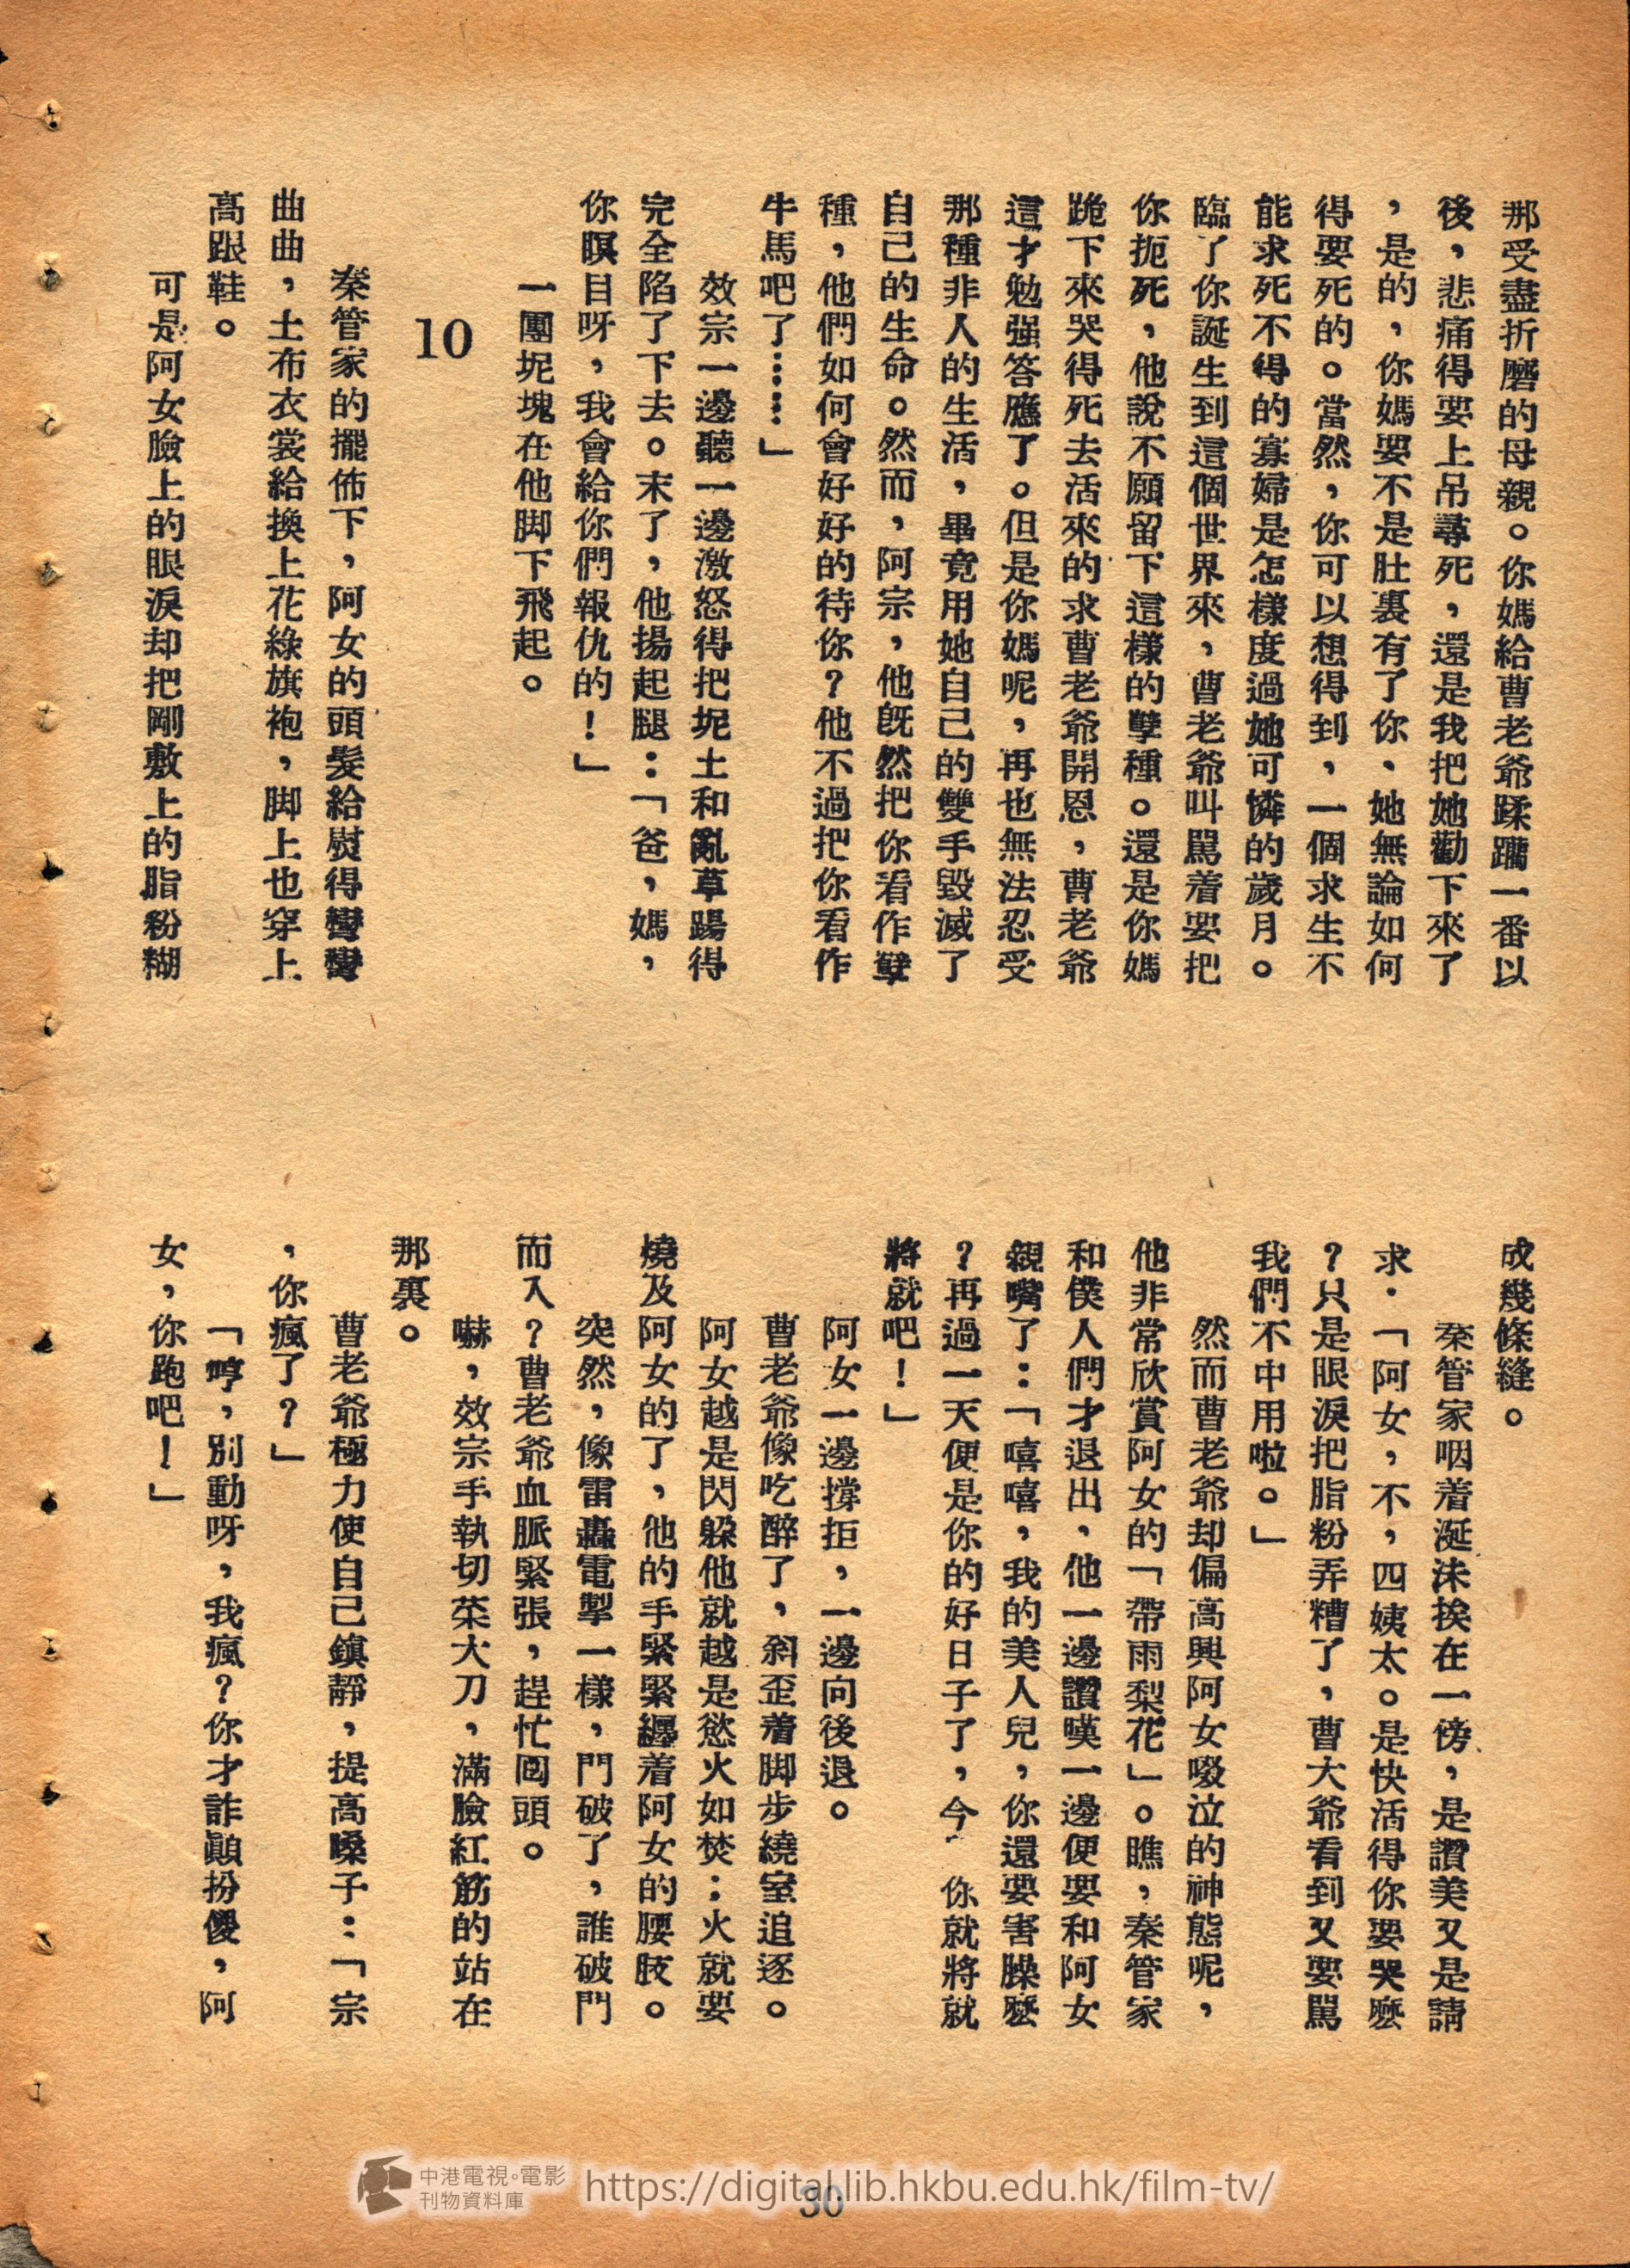 那受盡折磨的母親。你媽給曹老爺蹂躪一番以
後，悲痛得要上吊尋死，還是我把她勸下來了
，是的，你媽要不是肚裏有了你、她無論如何
得要死的。當然，你可以想得到，一個求生不
能求死不得的寡婦是怎樣度過她可憐的歲月。
臨了你誕生到這個世界來，曹老爺叫罵着要把
你扼死，他說不願留下這樣的孽種。還是你媽
跪下來哭得死去活來的求曹老爺開恩，曹老爺
這才勉强答應了。但是你媽呢，再也無法忍受
那種非人的生活，畢竟用她自己的雙手毀滅了
自己的生命。然而，阿宗，他旣然把你看作孽
種，他們如何會好好的待你？他不過把你看作
牛馬吧了……」
效宗一邊聽一邊激怒得把坭土和亂草踢得
完全陷了下去。末了，他揚起腿：「爸，媽，
你瞑目呀，我會給你們報仇的！」
一團坭塊在他脚下飛起。
10
秦管家的擺佈下，阿女的頭髮給熨得彎彎
曲曲，土布衣裳給換上花綠旗袍，脚上也穿上
高跟鞋。
可是阿女臉上的眼淚却把剛敷上的脂粉糊
成幾條縫。
秦管家咽着涎沫挨在一傍，是讚美又是請
求．「阿女，不，四姨太。是快活得你要哭麽
？只是眼淚把脂粉弄糟了，曹大爺看到又要罵
我們不中用啦。」
然而曹老爺却偏高興阿女啜泣的神態呢，
他非常欣賞阿女的「帶雨梨花」。瞧，秦管家
和僕人們才退出，他一邊讚嘆一邊便要和阿女
親嘴了：「嘻嘻，我的美人兒，你還要害臊麽
？再過一天便是你的好日子了，今 你就將就
將就吧！」
阿女一邊撐拒，一邊向後退。
曹老爺像吃醉了，斜歪着脚步繞室追逐。
阿女越是閃躲他就越是慾火如焚：火就要
燒及阿女的了，他的手緊緊纏着阿女的腰肢。
突然，像雷轟電掣一樣，門破了，誰破門
而入？曹老爺血脈緊張，趕忙囘頭。
嚇，效宗手執切菜大刀，滿臉紅筋的站在
那裏。
曹老爺極力使自己鎮靜，提高嗓子：「宗
，你瘋了？」
「哼，別動呀，我瘋？你才詐顚扮傻，阿
女，你跑吧！」
30
中港電視。電影
刊物資料庫
https://digital.lib.hkbu.edu.hk/film-tv/